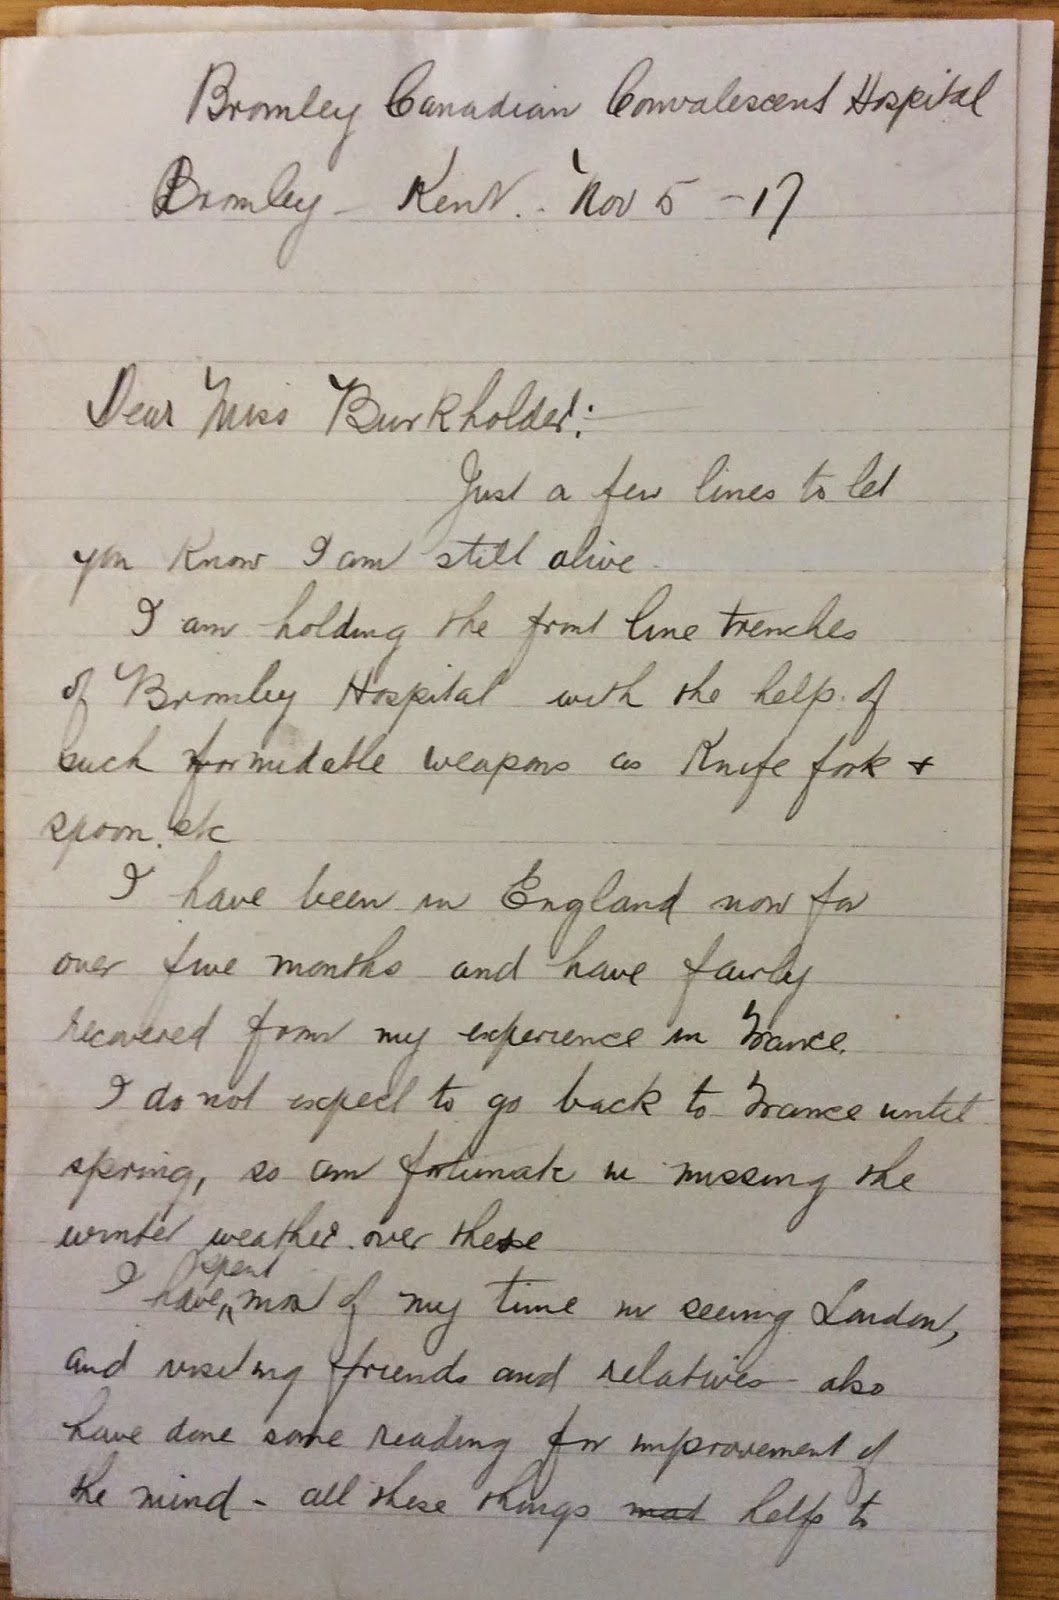 Bromley Canadian Convalescent Hospital
Bromley - Kent. - Nov 5 - 17
Dear Miss Burkholder:-
Just a few lines to let
you know I am still alive.
I am holding the front line trenches
of Bromley Hospital with the help of
such formidable weapons as Knife fork +
spoon. etc
I have been in England now for
over five months and have fairly
recovered from my experience in France.
I do not expect to go back to France until
spring, so am fortunate in missing the
winter weather over there
I have spent most of my time in seeing London,
and visiting friends and relatives - also
have done some reading for improvement of
the mind - all these things help to